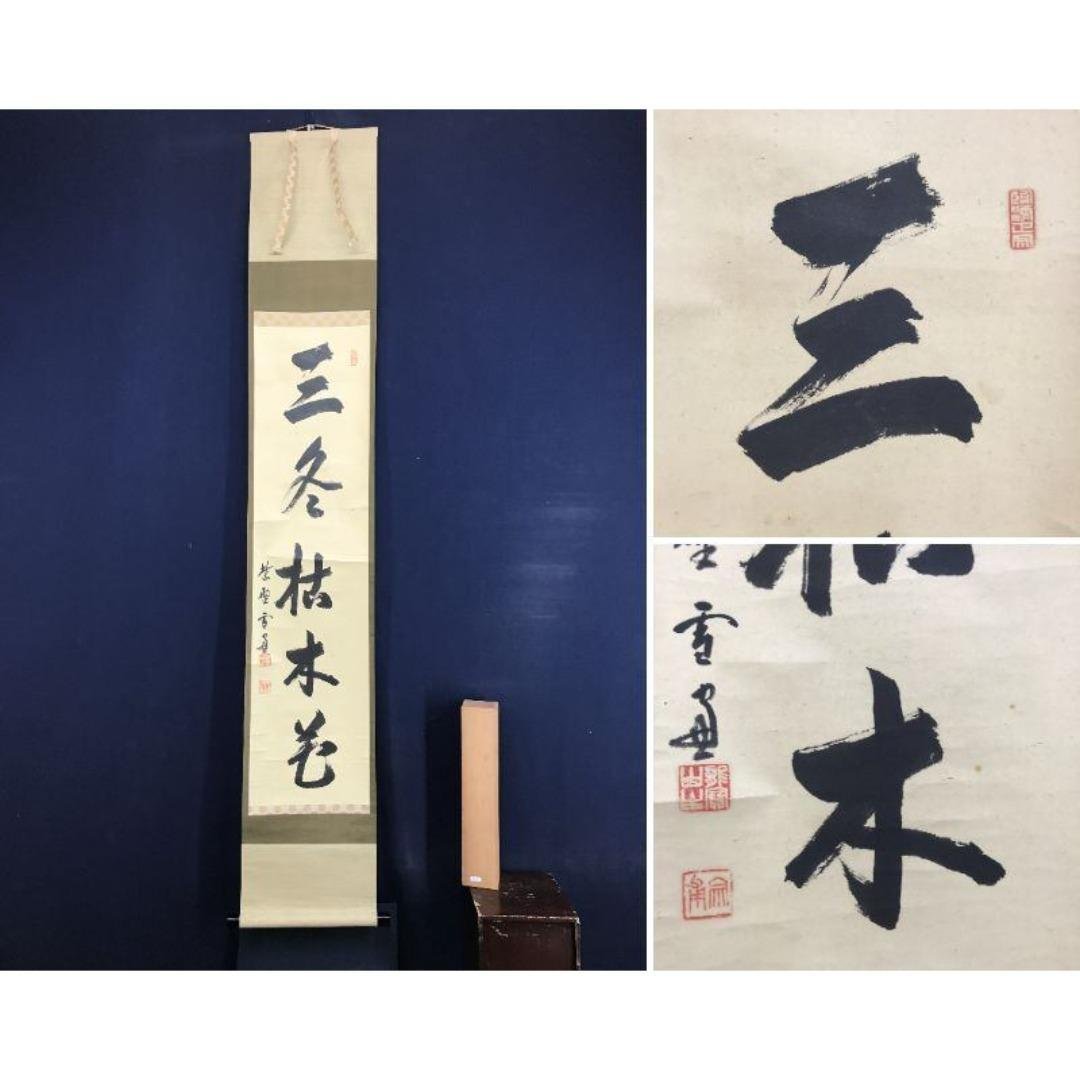 三冬枯木花
紫野雪
三
雪
木